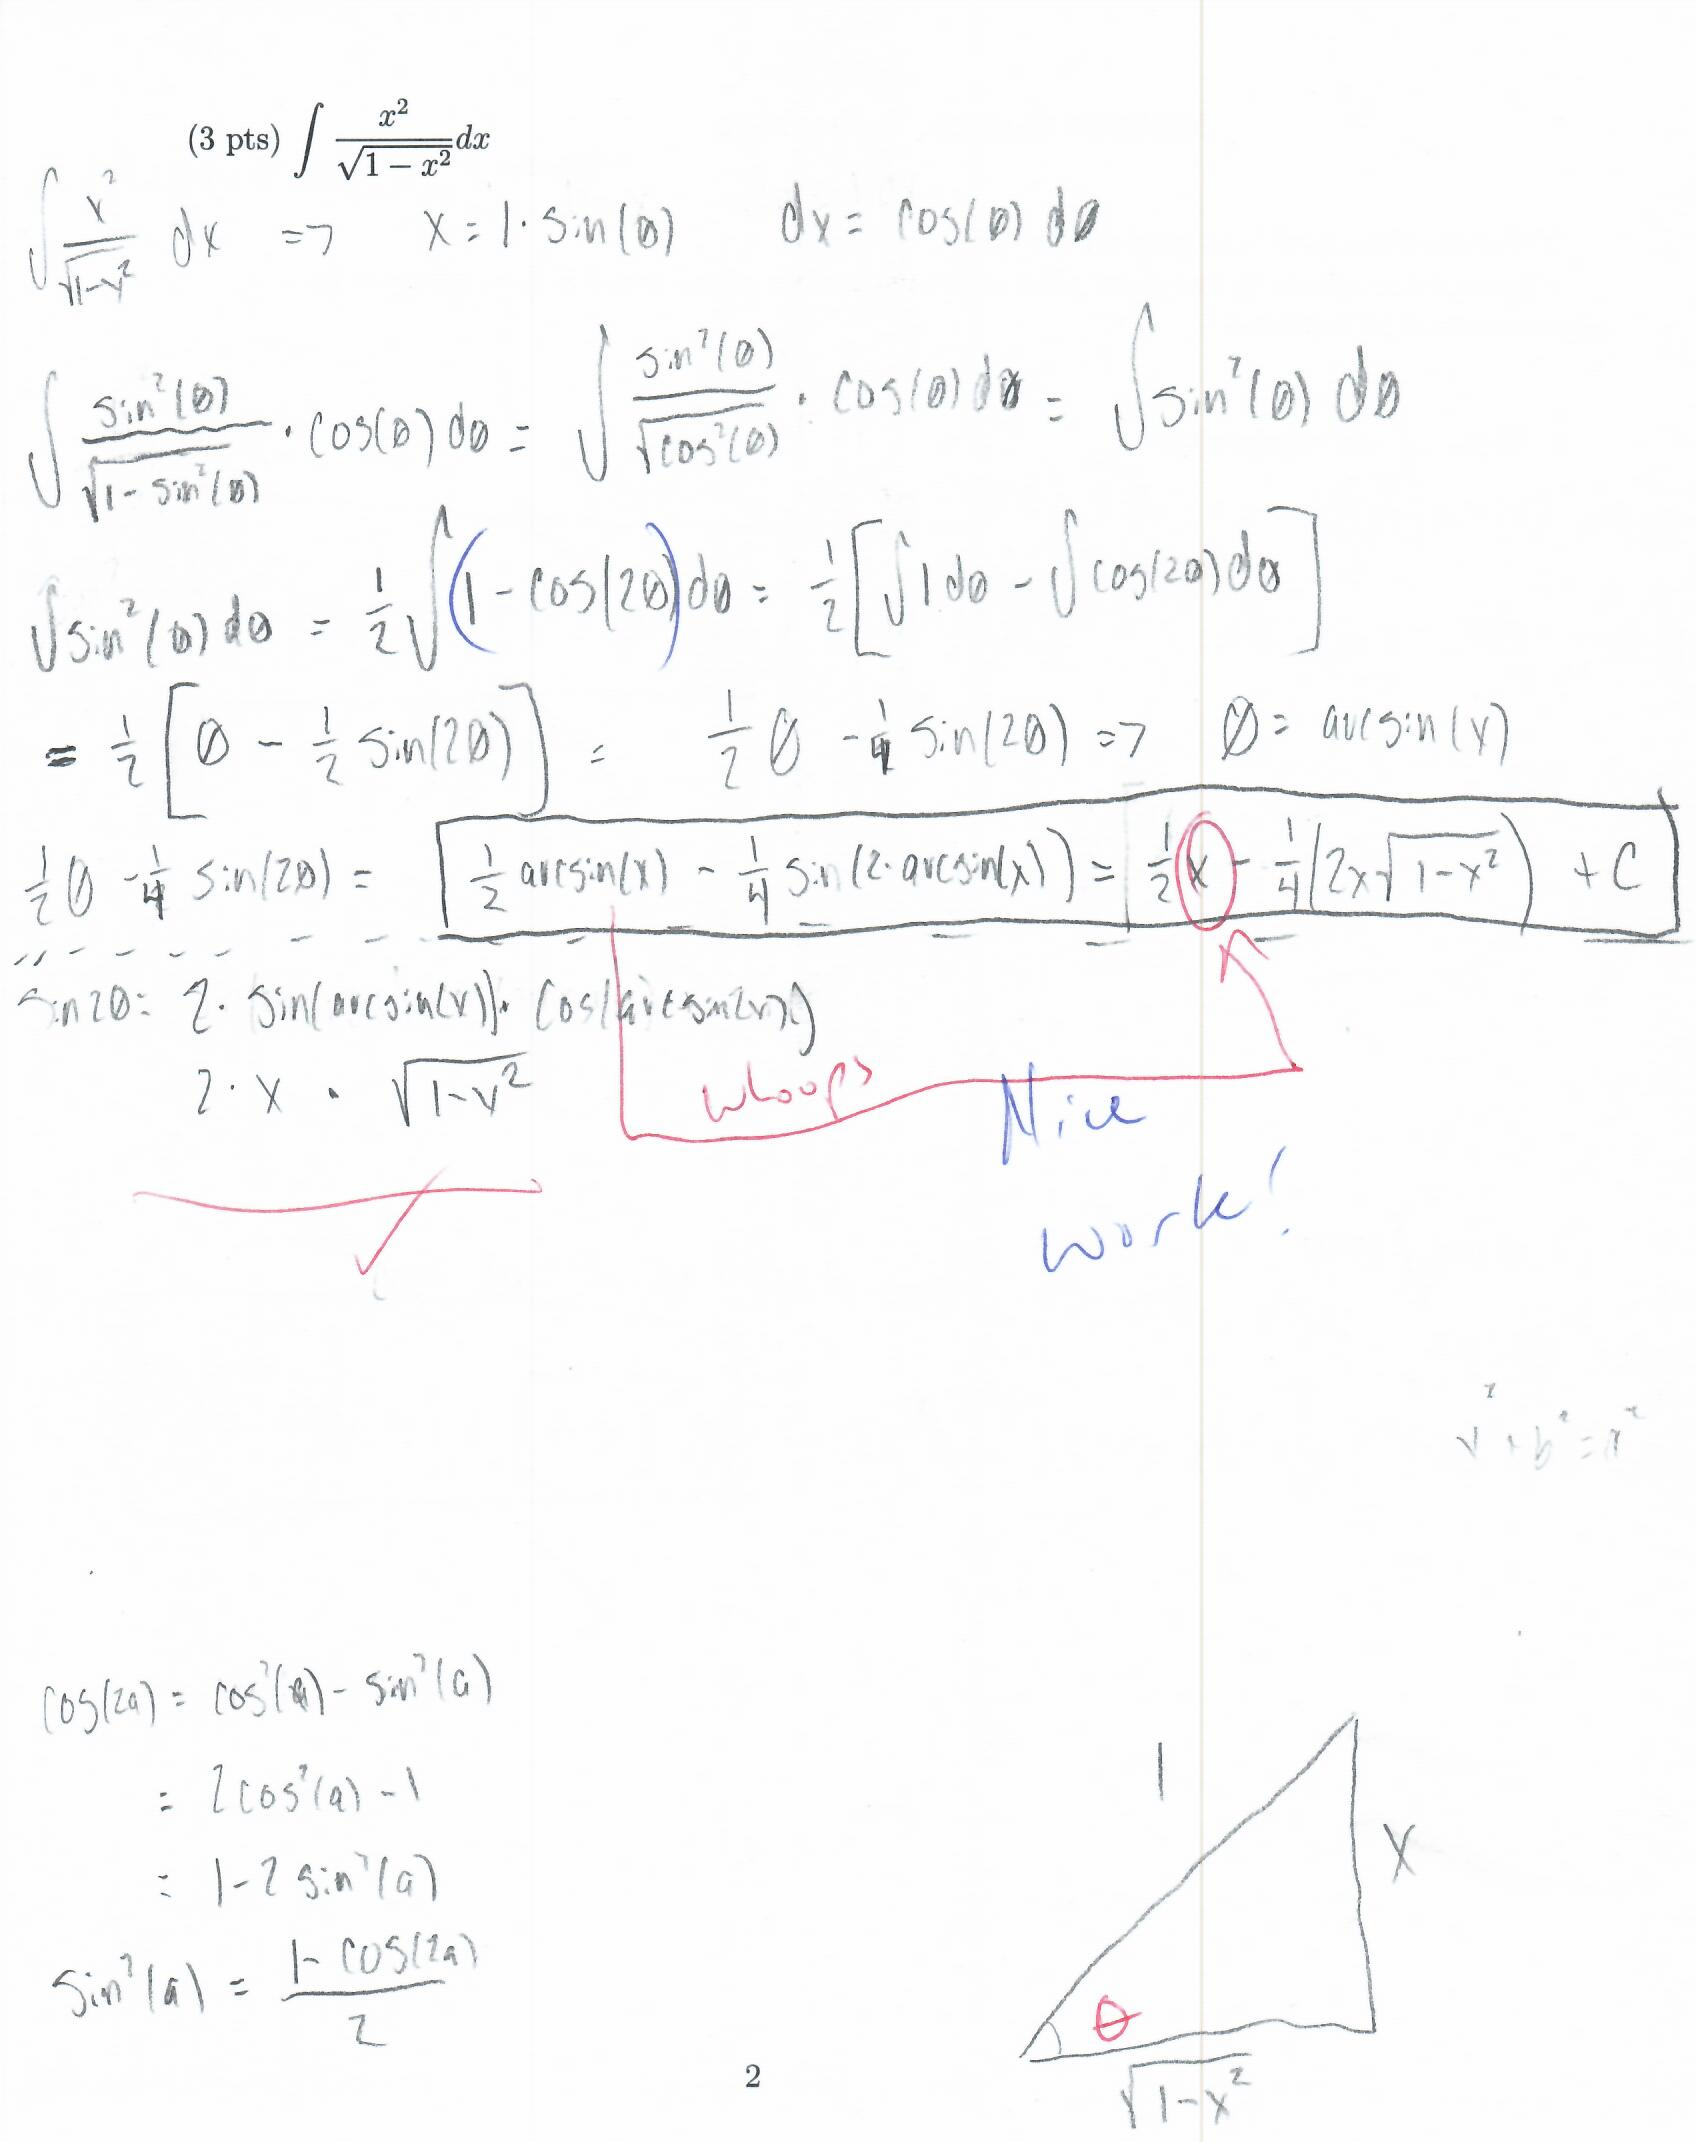 (3 pts) ∫ x²/√(1 − x²) dx
∫ x²/√(1-x²) dx => x = 1 · sin(θ) dx = cos(θ) dθ
∫ sin²(θ)/√(1 - sin²(θ)) · cos(θ) dθ = ∫ sin²(θ)/√(cos²(θ)) · cos(θ) dθ = ∫ sin²(θ) dθ
∫ sin²(θ) dθ = 1/2 ∫ (1 - cos(2θ)) dθ = 1/2 [∫ 1 dθ - ∫ cos(2θ) dθ]
= 1/2 [θ - 1/2 sin(2θ)] = 1/2 θ - 1/4 sin(2θ) => θ = arcsin(x)
1/2 θ - 1/4 sin(2θ) = 1/2 arcsin(x) - 1/4 sin(2·arcsin(x)) = 1/2 x - 1/4 (2x√(1-x²)) + C
sin2θ = 2 · sin(arcsin(x)) · cos(arcsin(x))
2 · x · √(1-x²)
whoops
Nice
work!
cos(2a) = cos²(a) - sin²(a)
= 2cos²(a) - 1
= 1 - 2 sin²(a)
sin²(a) = (1 - cos(2a))/2
1
x
θ
√(1-x²)
2